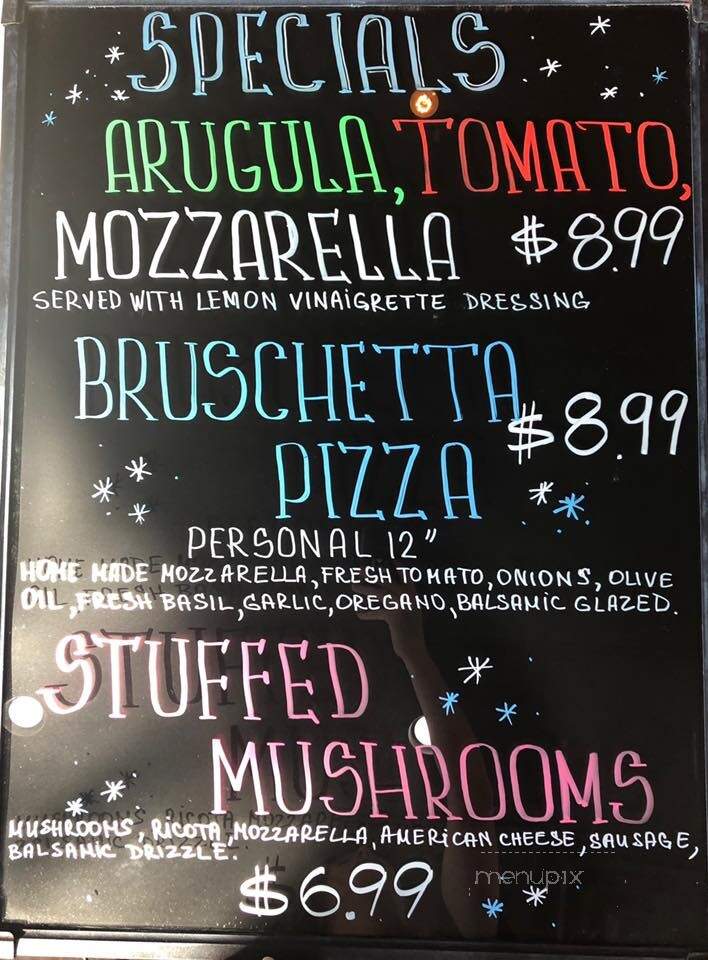 SPECIALS
ARUGULA, TOMATO,
MOZZARELLA $8.99
SERVED WITH LEMON VINAiGRETTE DRESSING
BRUSCHETTA
$8.99
PIZZA
PERSONAL 12"
HOME MADE MOZZARELLA, FRESH TOMATO, ONIONS, OLIVE
OIL, FRESH BASIL, GARLIC, OREGANO, BALSAMiC GLAZED.
STUFFED
MUSHROOMS
MUSHROOMS, RICOTA, MOZZARELLA, AMERiCAN CHEESE, SAUSAGE,
BALSAMIC DRIZZLE.
$6.99
menupix